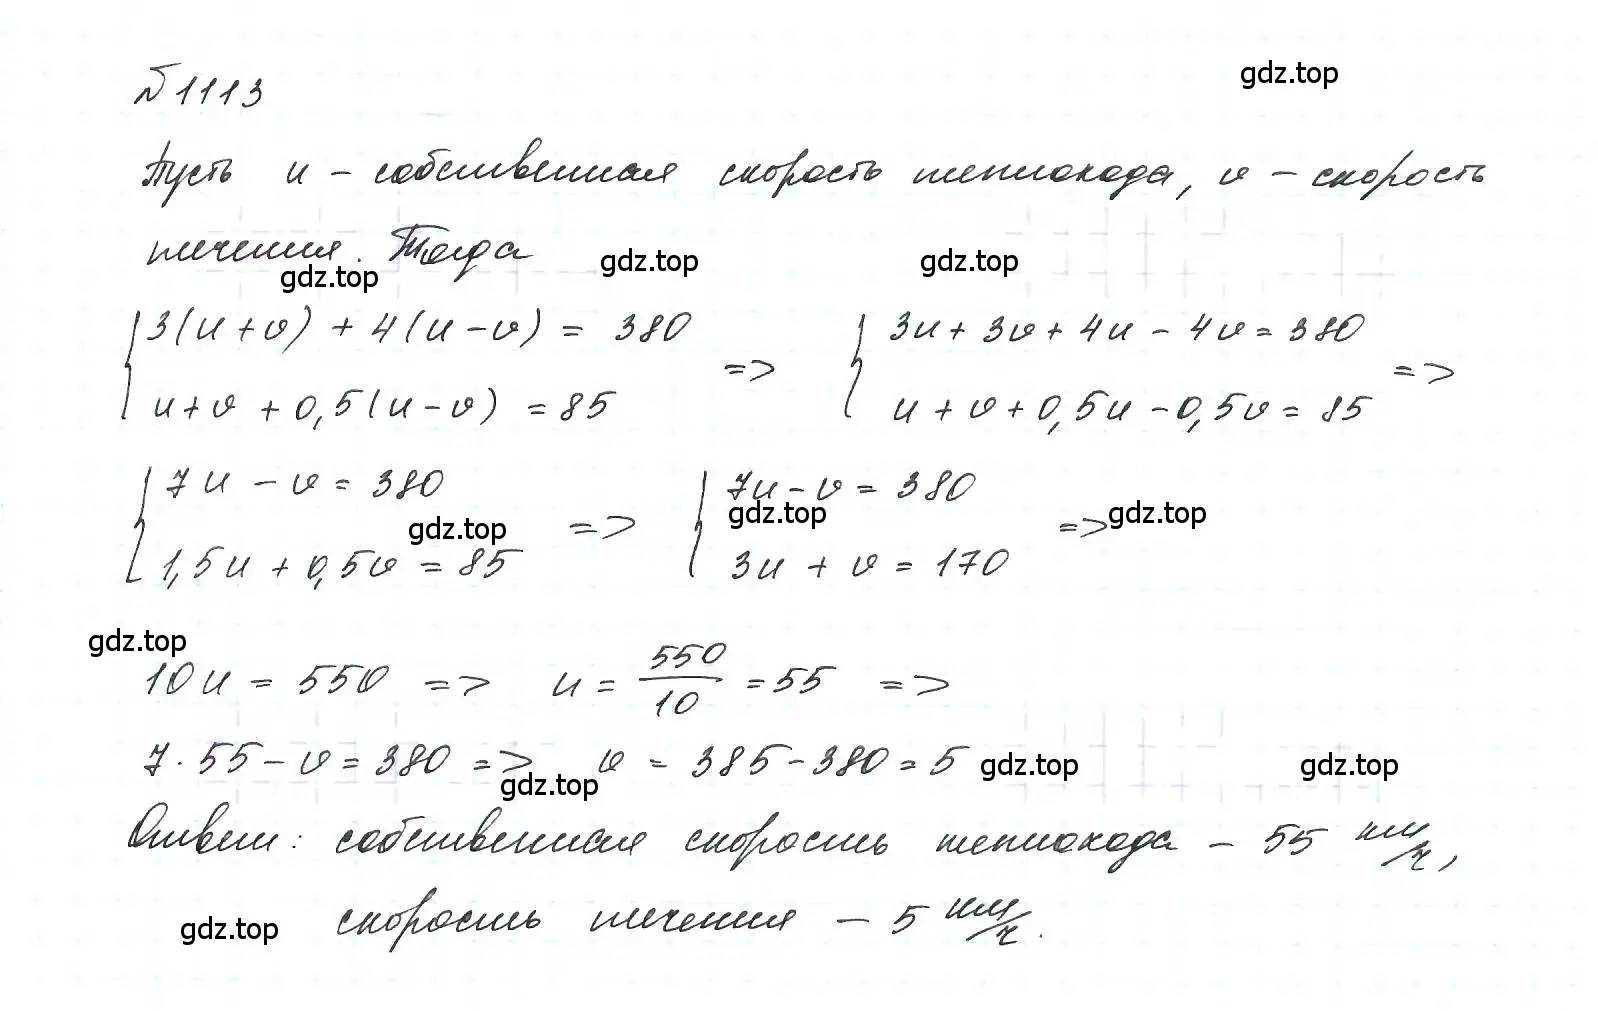 № 1113
gdz.top
Пусть u – собственная скорость теплохода, v – скорость
течения. Тогда
gdz.top gdz.top gdz.top
3(u+v) + 4(u-v) = 380 => 3u + 3v + 4u - 4v = 380 =>
u+v + 0,5(u-v) = 85 u + v + 0,5u - 0,5v = 85
7u - v = 380 => 7u - v = 380 =>
gdz.top gdz.top gdz.top
1,5u + 0,5v = 85 3u + v = 170
gdz.top
10u = 550 => u = 550/10 = 55 =>
7·55 - v = 380 => v = 385 - 380 = 5
gdz.top gdz.top gdz.top
Ответ: собственная скорость теплохода – 55 км/ч,
скорость течения – 5 км/ч.
gdz.top